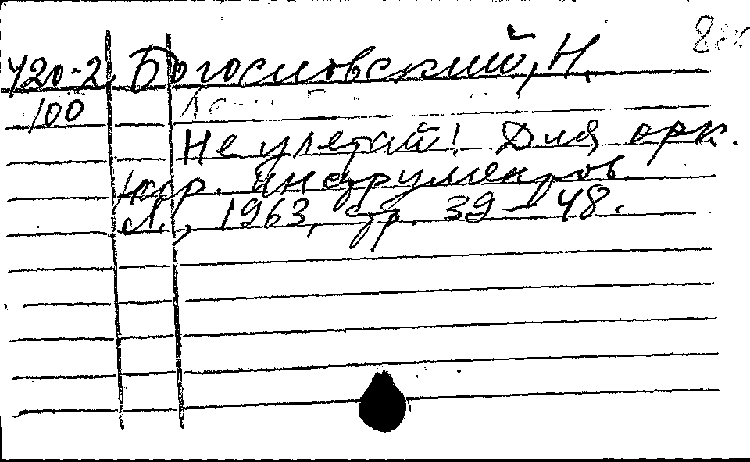 У20-2 Богословский, Н.
100
Не улетай! Для орк.
нар. инструментов
Л., 1963, стр. 39-48.